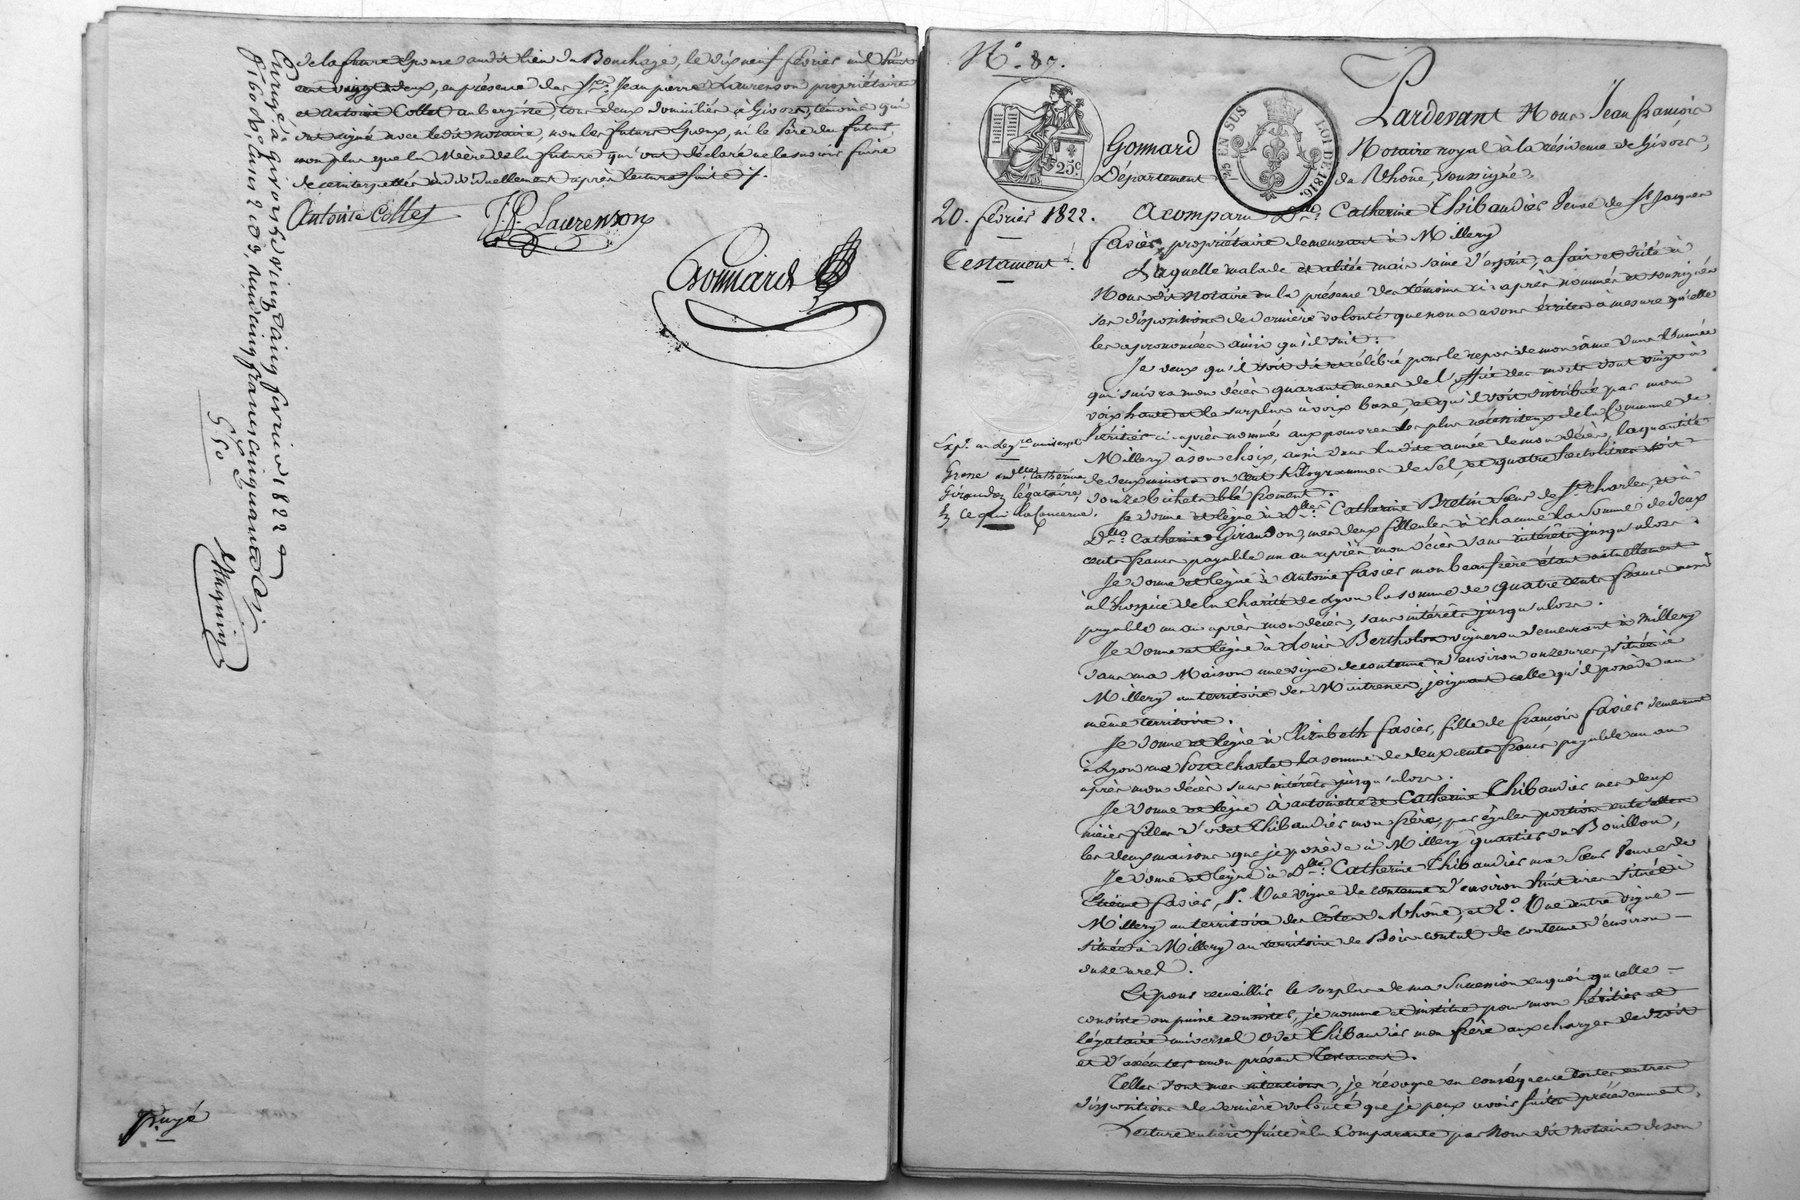 de la future Epouse audit lieu du Bouchage, le dixneuf février mil huit
cent vingt deux, en présence des Srs. Jean pierre Laurenson propriétaire
et Antoine Collet aubergiste, tous deux domiciliés à Givors, témoins qui
ont signé avec ledit notaire, non les futurs Epoux, ni le Père du futur,
non plus que la Mère de la future qui ont déclaré ne le savoir faire
de ce interpellés individuellement après lecture faite ./.
Antoine Collet
J. P. Laurenson
Gonnard
Enregé à givors le vingt cinq fevrier 1822
f° 160 R°, cases 2 et 3, reçu cinq francs cinquante c
5 50
Payé
N.° 87.
Pardevant Nous Jean françois
Gonnard
Notaire royal à la résidence de Givors,
Département
du Rhône, soussigné.
25 EN SUS
LOI DE 1816.
25c
20. février 1822.
Testament.
A comparu Dme. Catherine Thibaudier Veuve de Sr Jacques
favier, propriétaire demeurant à Millery
Laquelle malade et alitée mais saine d'esprit, a fait et dicté à
Nous dit notaire en la présence des témoins ci-après nommés et soussignés
ses dispositions de dernière volonté que nous avons écrites à mesure qu'elle
les a prononcées ainsi qu'il suit.
Je veux qu'il soit dit et célébré pour le repos de mon âme dans l'année
qui suivra mon décès quarante messes de l'office des morts dont vingt à
voix haute et le surplus à voix basse, et qu'il soit distribué par mon
héritier ci-après nommé aux pauvres les plus nécessiteux de la Commune de
Millery à son choix, aussi dans ladite année de mon décès, la quantité
de deux minots ou cent kilogrammes de sel, et quatre hectolitres soit
douze bichets blé froment.
Grosse à Dlle Catherine
Giraudon légataire
En ce qui la concerne.
Je donne et lègue à Dlles. Catherine Bretin Sœur de St. Charles, et à
Dlle. Catherine Giraudon, mes deux filleules à chacune la somme de deux
cents francs payable un an après mon décès sans intérêts jusqu'alors.
Je donne et lègue à Antoine favier mon beau frère étant actuellement
à l'hospice de la Charité de Lyon la somme de quatre cents francs aussi
payable un an après mon décès, sans intérêts jusqu'alors.
Je donne et lègue à Louis Bertholon vigneron demeurant à Millery
dans ma Maison une vigne de contenue d'environ onze ares, située à
Millery au territoire des, joignant celle qu'il possède au
même territoire.
Je donne et lègue à Elizabeth favier, fille de françois favier demeurant
à Lyon rue Port charlet la somme de deux cents francs, payable un an
après mon décès sans intérêts jusqu'alors.
Je donne et lègue à antoinette et Catherine Thibaudier mes deux
nièces filles d' Thibaudier mon frère, par égales portions entr'elles
les deux maisons que je possède à Millery quartier du Bouillon,
Je donne et lègue à Dlle. Catherine Thibaudier ma Sœur Veuve de
Etienne favier, 1°. Une vigne de contenue d'environ huit ares située à
Millery au territoire des côtes du Rhône, et 2°. Une autre vigne
située à Millery au territoire de Bois contal de contenue d'environ
onze ares.
Et pour recueillir le surplus de ma Succession en quoi qu'elle
consiste ou puisse consister, je nomme et institue pour mon héritier et
légataire universel Thibaudier mon frère aux charges de droit
et d'exécuter mon présent Testament.
Telles sont mes intentions, je révoque en conséquence toutes autres
dispositions de dernière volonté que je peux avoir faites précédemment,
Lecture entière faite à la Comparante par Nous dit notaire de son